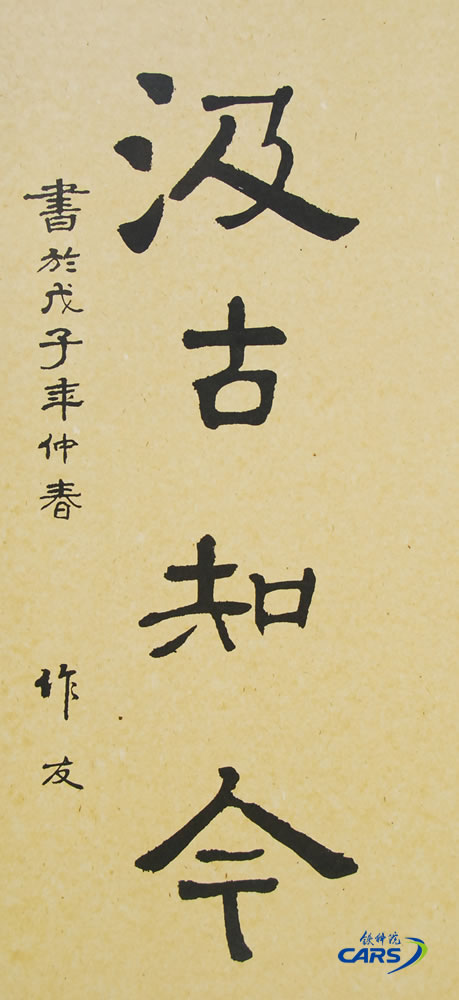 汲古知今
書於戊子年仲春
作友
铁科院
CARS